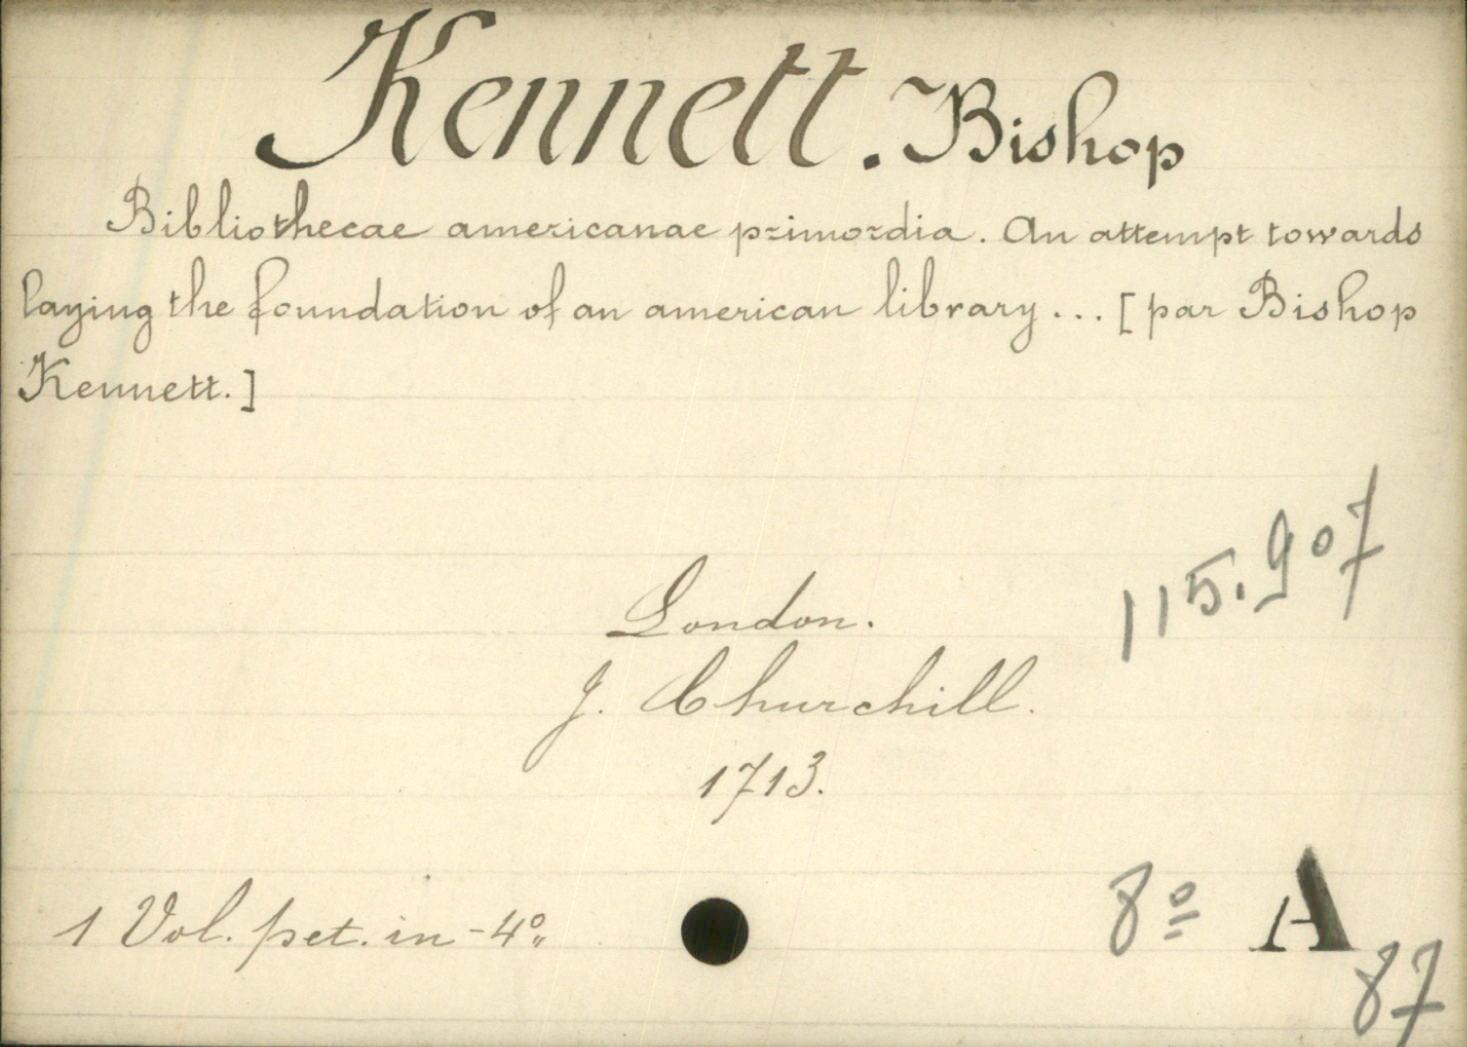 Kennett. Bishop
Bibliothecae americanae primordia. An attempt towards
laying the foundation of an american library... [par Bishop
Kennett.]
115.907
London.
J. Churchill.
1713.
1 Vol. pet. in-4º
8º A
87